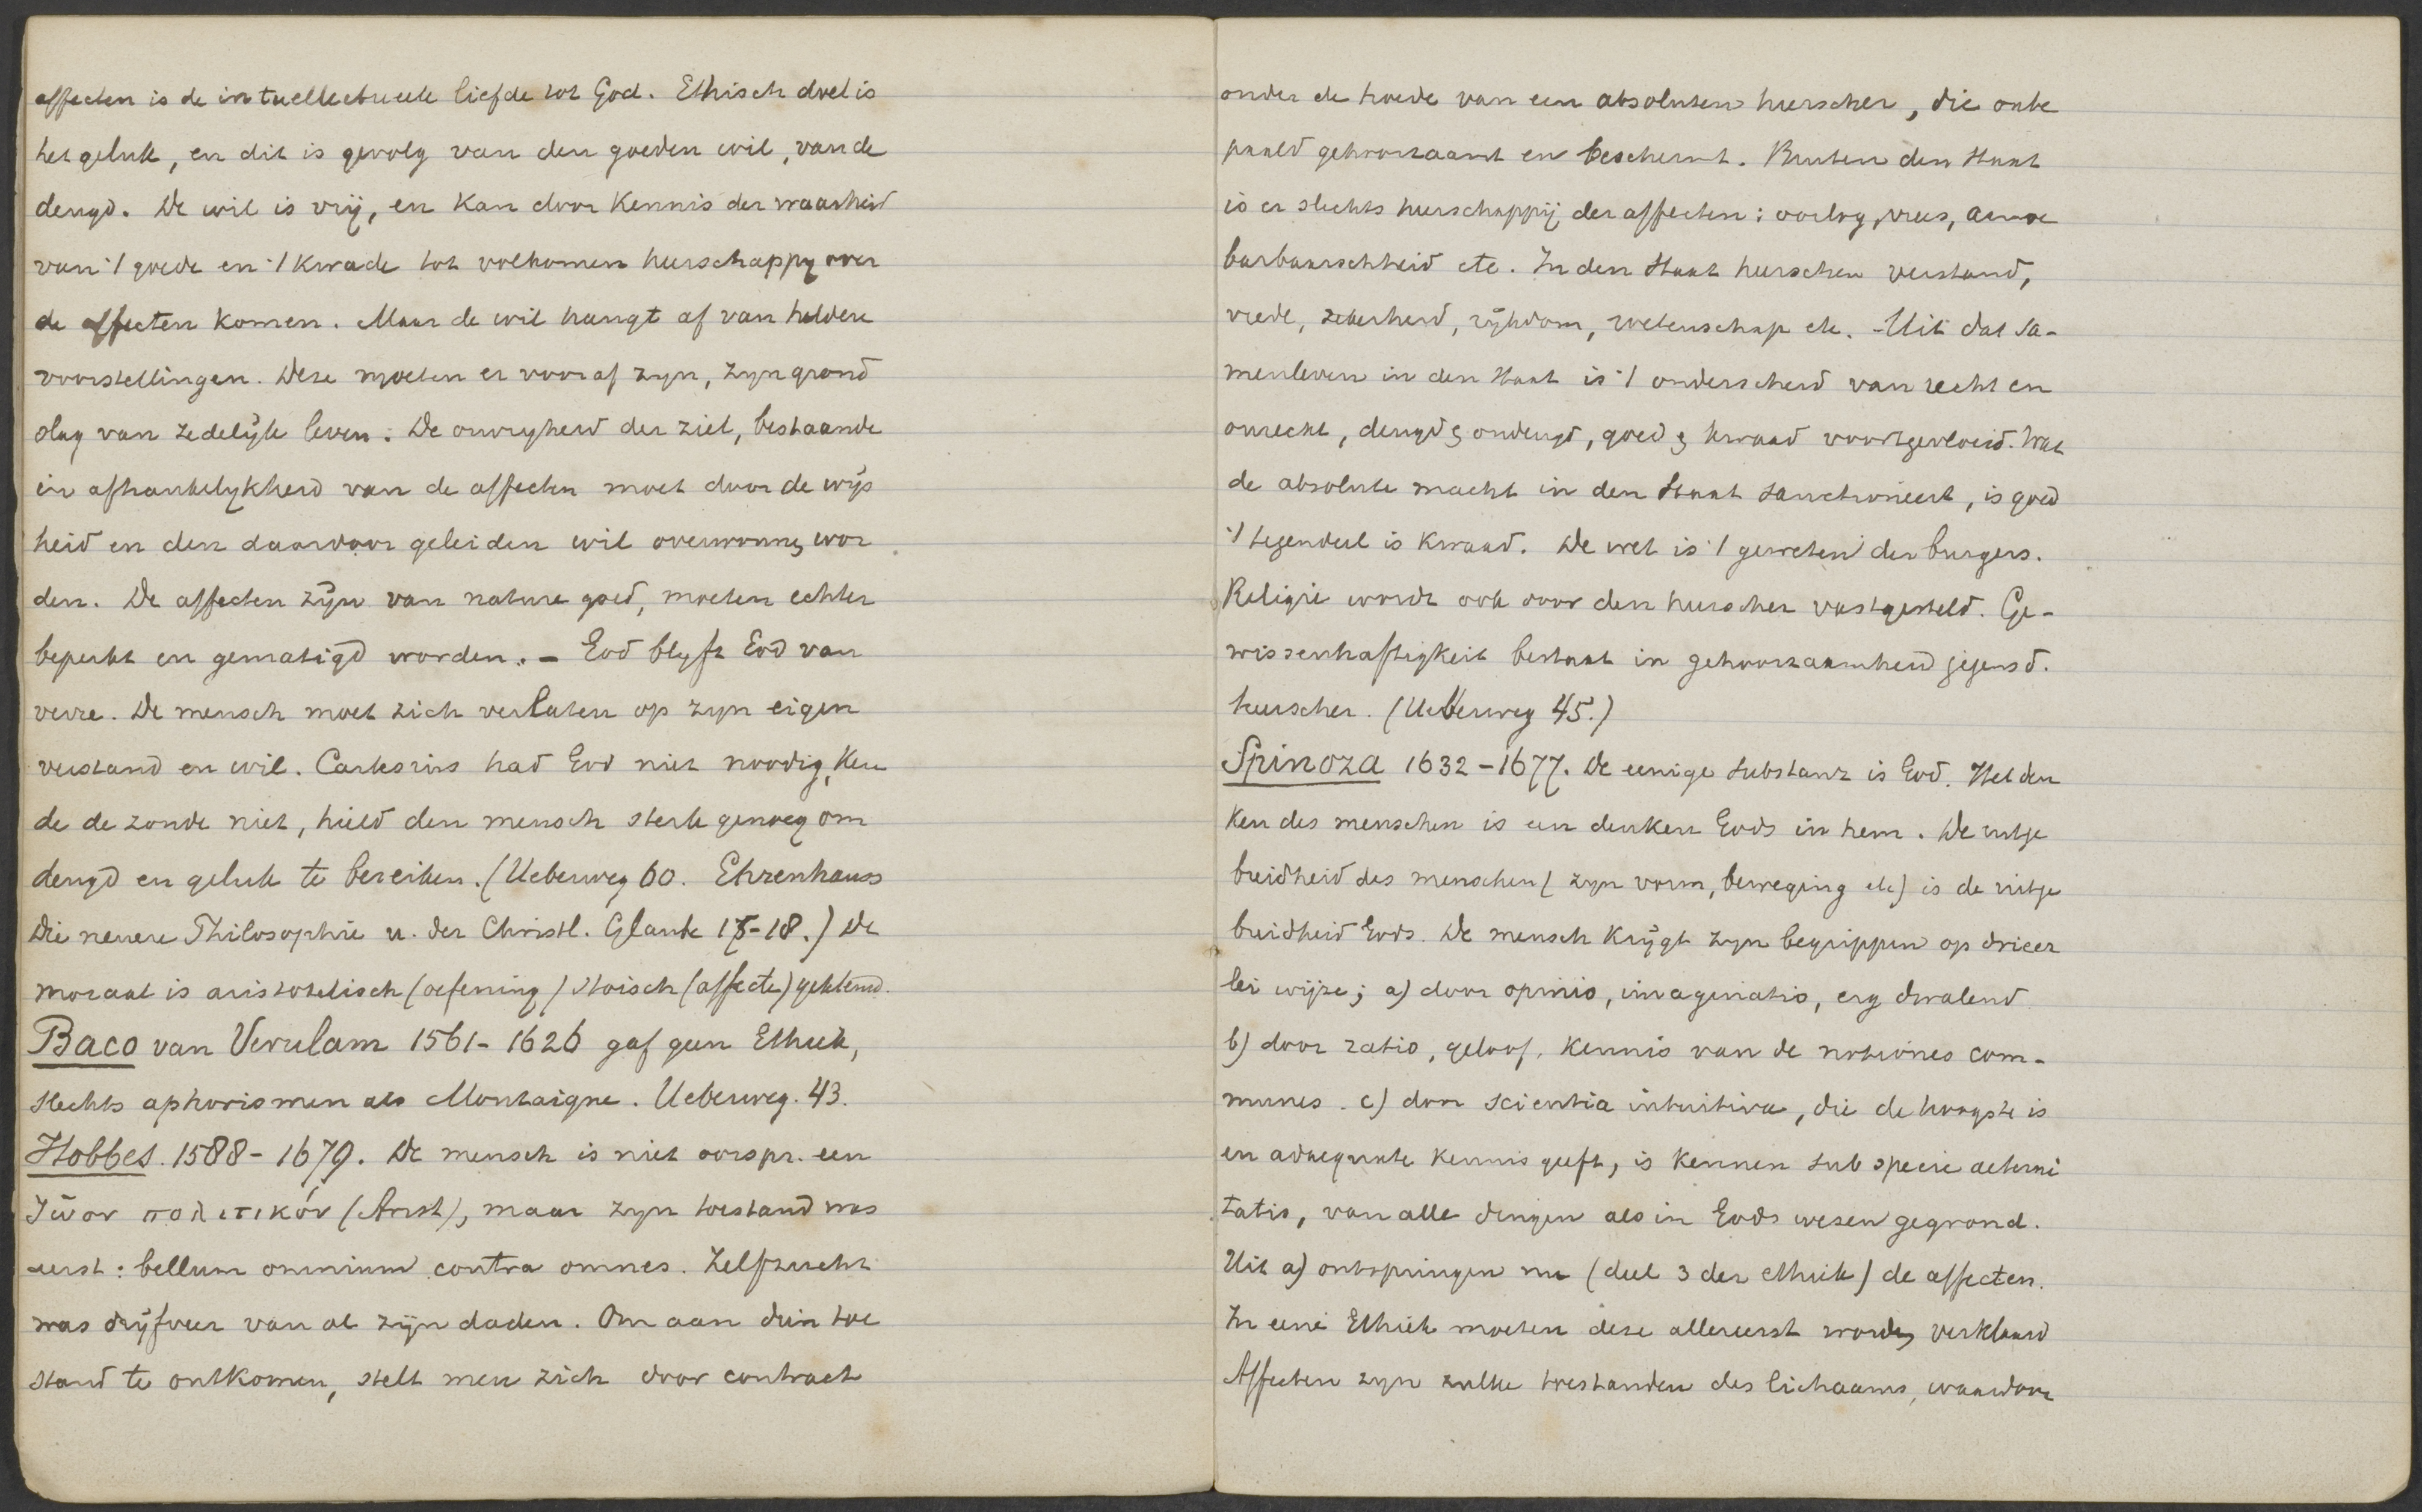 affecten is de intuellectueele liefde tot God. Ethisch doel is
het geluk, en dit is gevolg van den goeden wil, van de
deugd. De wil is vrij, en kan door kennis der waarheid
van 't goede en 't kwade tot volkomen heerschappy over
de affecten komen. Maar de wil hangt af van heldere
voorstellingen. Deze moeten er vooraf zyn, zyn grond
slag van zedelijk leven. De onvryheid der ziel, bestaande
in afhankelykheid van de affecten moet door de wijs
heid en den daardoor geleiden wil overwonnen wor
den. De affecten zijn van nature goed, moeten echter
beperkt en gematigd worden. - God blyft God van
verre. De mensch moet zich verlaten op zyn eigen
verstand en wil. Cartesius had God niet noodig, ken
de de zonde niet, hield den mensch sterk genoeg om
deugd en geluk te bereiken. (Ueberweg 60. Ehrenhauss
Die neuere Philosophie u. der Christl. Glaube 15-18.) De
moraal is aristotelisch (oefening) stoisch (affecte) gekleurd.
Baco van Verulam 1561-1626 gaf geen Ethiek,
slechts aphorismen als Montaigne. Ueberweg. 43.
Hobbes. 1588-1679. De mensch is niet oorspr. een
ζωον πολιτικόν (Arist), maar zyn toestand was
eerst: bellum omnium contra omnes. Zelfzucht
was drijfveer van al zijn daden. Om aan dien toe
stand te ontkomen, stelt men zich door contract
onder de hoede van een absoluten heerscher, die onbe
paald gehoorzaamt en beschermt. Buiten den Staat
is er slechts heerschappij der affecten: oorlog, vrees, armoe
barbaarschheid etc. In den Staat heerschen verstand,
vrede, zekerheid, rijkdom, wetenschap etc. - Uit dat sa-
menleven in den Staat is 't onderscheid van recht en
onrecht, deugd & ondeugd, goed & kwaad voortgevloeid. Wat
de absolute macht in den Staat sanctioneert, is goed
't tegendeel is kwaad. De wet is 't geweten der burgers.
Religie wordt ook door den heerscher vastgesteld. Ge-
wissenhaftigkeit bestaat in gehoorzaamheid jegens d.
heerscher. (Ueberweg 45.)
Spinoza 1632-1677. De eenige substanz is God. Het den
ken des menschen is een denken Gods in hem. De uitge
breidheid des menschen (zyn vorm, beweging etc) is de uitge
breidheid Gods. De mensch krijgt zyn begrippen op drieer
lei wijze; a) door opinio, imaginatio, erg dwalend
b) door ratio, geloof, kennis van de notiones com-
munes. c) door scientia intuitiva, die de hoogste is
en adaequate kennis geeft, is kennen sub specie aeterni
tatis, van alle dingen als in Gods wezen gegrond.
Uit a) ontspringen nu (deel 3 der ethiek) de affecten.
In eene Ethiek moeten deze allereerst worden verklaard
Affecten zyn zulke toestanden des lichaams, waardoor